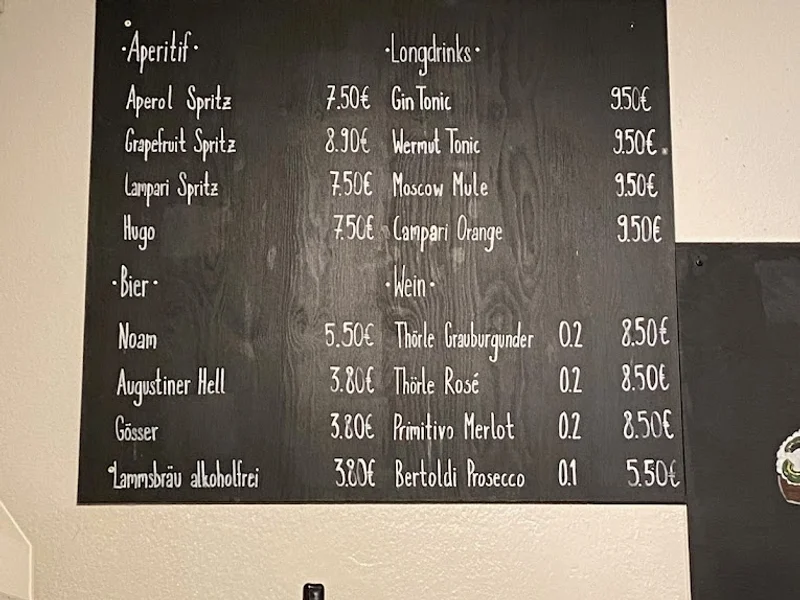 ·Aperitif·
Aperol Spritz 7.50€
Grapefruit Spritz 8.90€
Campari Spritz 7.50€
Hugo 7.50€
·Longdrinks·
Gin Tonic 9.50€
Wermut Tonic 9.50€
Moscow Mule 9.50€
Campari Orange 9.50€
·Bier·
Noam 5.50€
Augustiner Hell 3.80€
Gösser 3.80€
Lammsbräu alkoholfrei 3.80€
·Wein·
Thörle Grauburgunder 0.2 8.50€
Thörle Rosé 0.2 8.50€
Primitivo Merlot 0.2 8.50€
Bertoldi Prosecco 0.1 5.50€